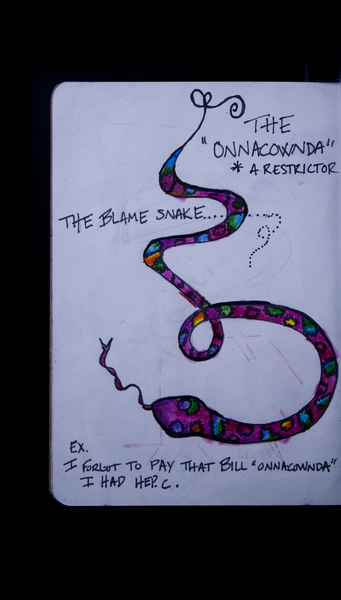 THE
"ONNACOWNDA"
* A RESTRICTOR
THE BLAME SNAKE....
EX.
I FORGOT TO PAY THAT BILL "ONNACOWNDA"
I HAD HEP. C.